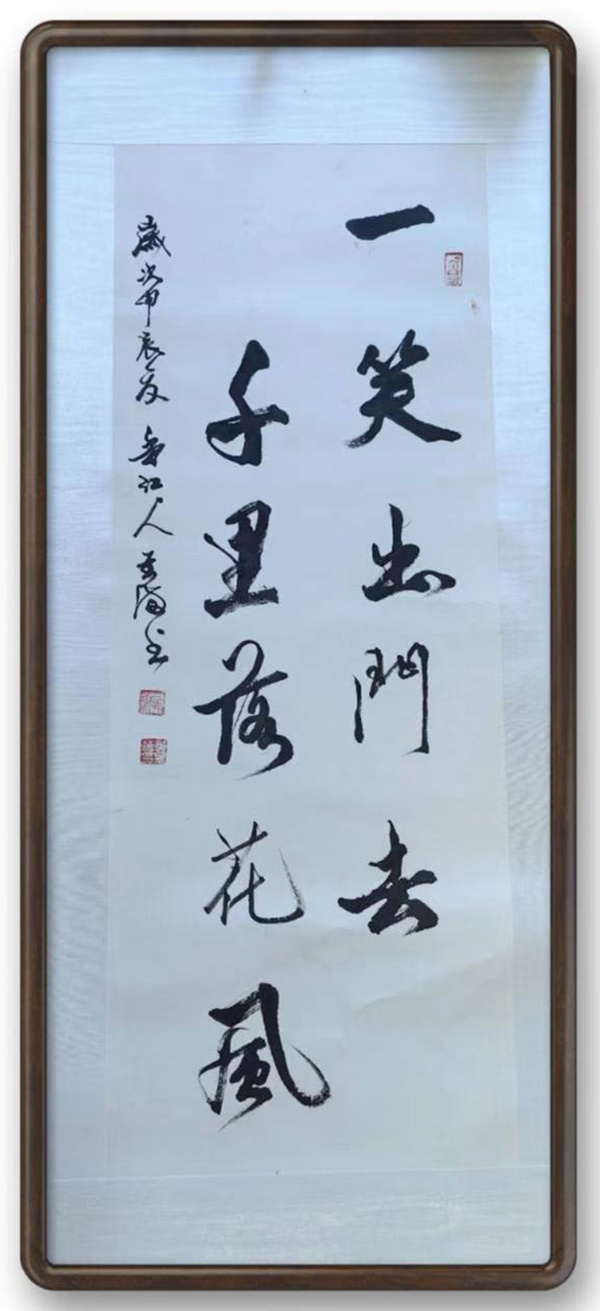 一笑出門去
千里落花風
歲次甲辰夏 香江人